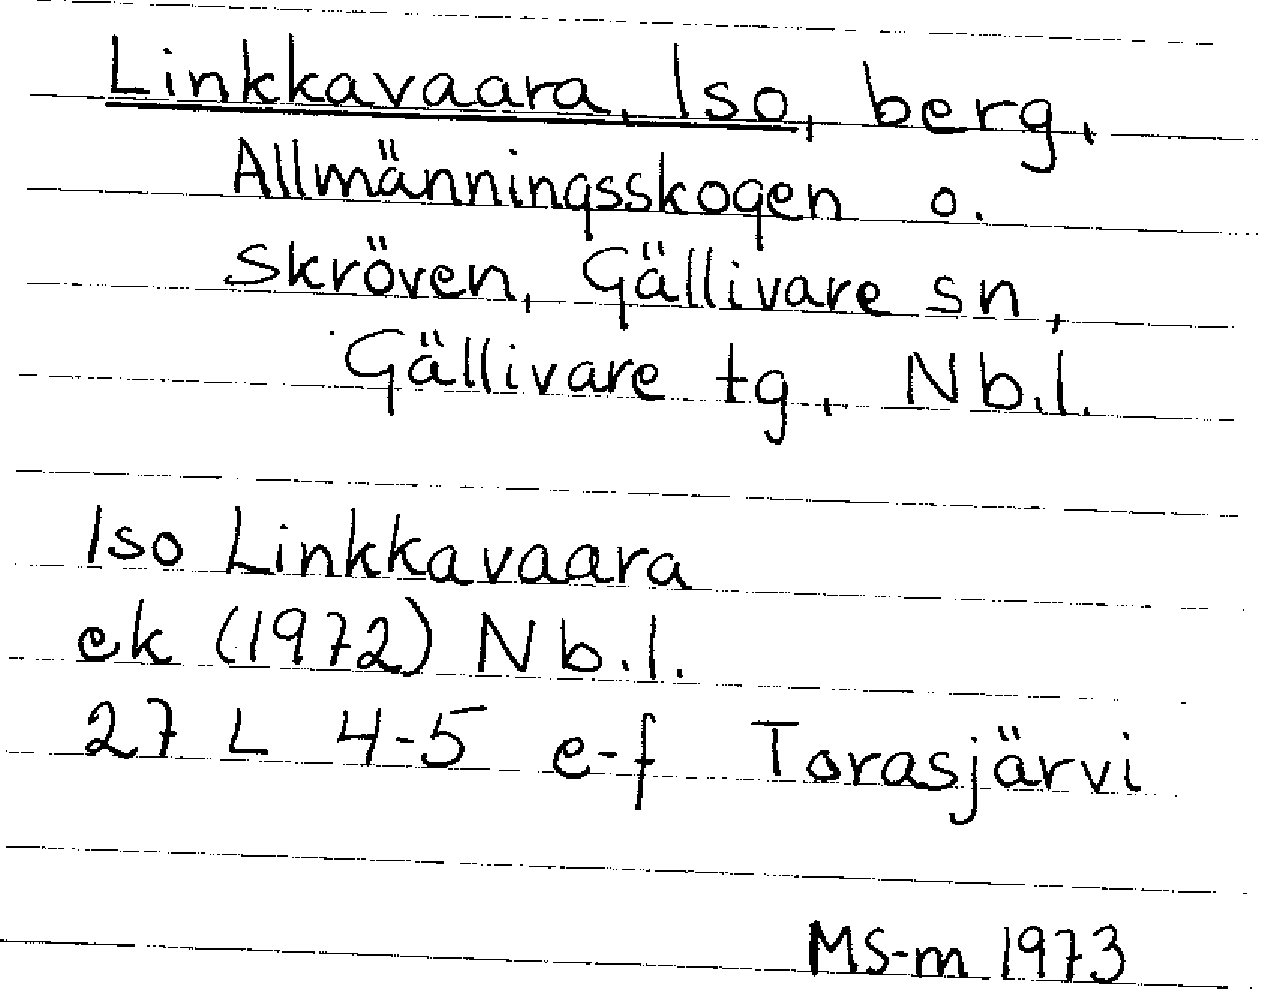 Linkkavaara, Iso, berg,
Allmänningsskogen o.
Skröven, Gällivare sn,
Gällivare tg, Nb.l.
Iso Linkkavaara
ek (1972) Nb.l.
27 L 4-5 e-f Torasjärvi
MS-m 1973